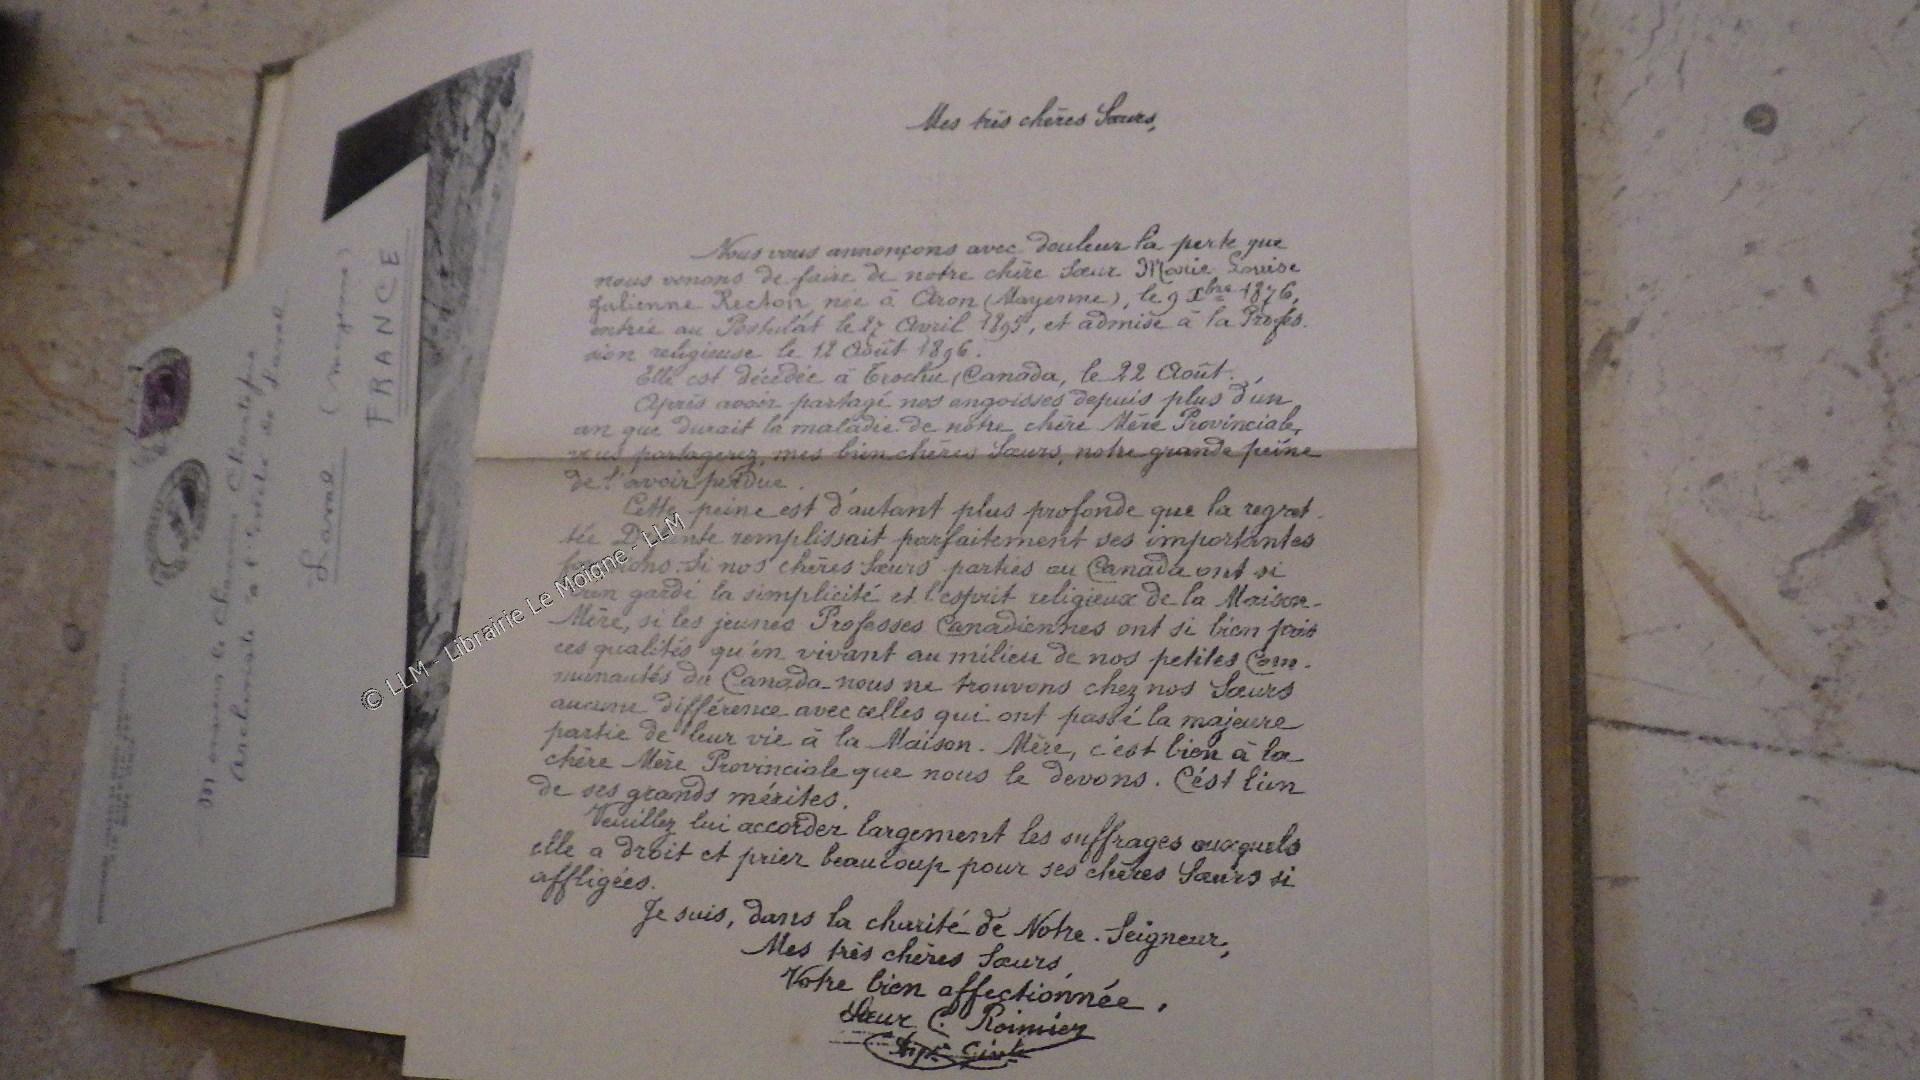 Mes très chères Sœurs,
Nous vous annonçons avec douleur la perte que
nous venons de faire de notre chère Sœur Marie Louise
Julienne Recton née à Aron (Mayenne), le 9 Xbre 1876,
entrée au Postulat le 27 Avril 1895, et admise à la Profes-
sion religieuse le 12 Août 1896.
Elle est décédée à Trochu, Canada, le 22 Août.
Après avoir partagé nos angoisses depuis plus d'un
an que durait la maladie de notre chère Mère Provinciale,
vous partagerez, mes bien chères Sœurs, notre grande peine
de l'avoir perdue.
Cette peine est d'autant plus profonde que la regret-
tée remplissait parfaitement ses importantes
Si nos chères Sœurs parties au Canada ont si
bien gardé la simplicité et l'esprit religieux de la Maison-
Mère, si les jeunes Professes Canadiennes ont si bien pris
ces qualités qu'en vivant au milieu de nos petites Com-
munautés du Canada nous ne trouvons chez nos Sœurs
aucune différence avec celles qui ont passé la majeure
partie de leur vie à la Maison-Mère, c'est bien à la
chère Mère Provinciale que nous le devons. C'est l'un
de ses grands mérites.
Veuillez lui accorder largement les suffrages auxquels
elle a droit et prier beaucoup pour ses chères Sœurs si
affligées.
Je suis, dans la charité de Notre-Seigneur,
Mes très chères Sœurs,
Votre bien affectionnée,
Sœur C. Roimier
Supre Gérle
Monsieur le Chanoine Chantepie
Archiviste à l'Évêché de Laval
Laval (Mayenne)
FRANCE
© LLM - Librairie Le Moigne - LLM